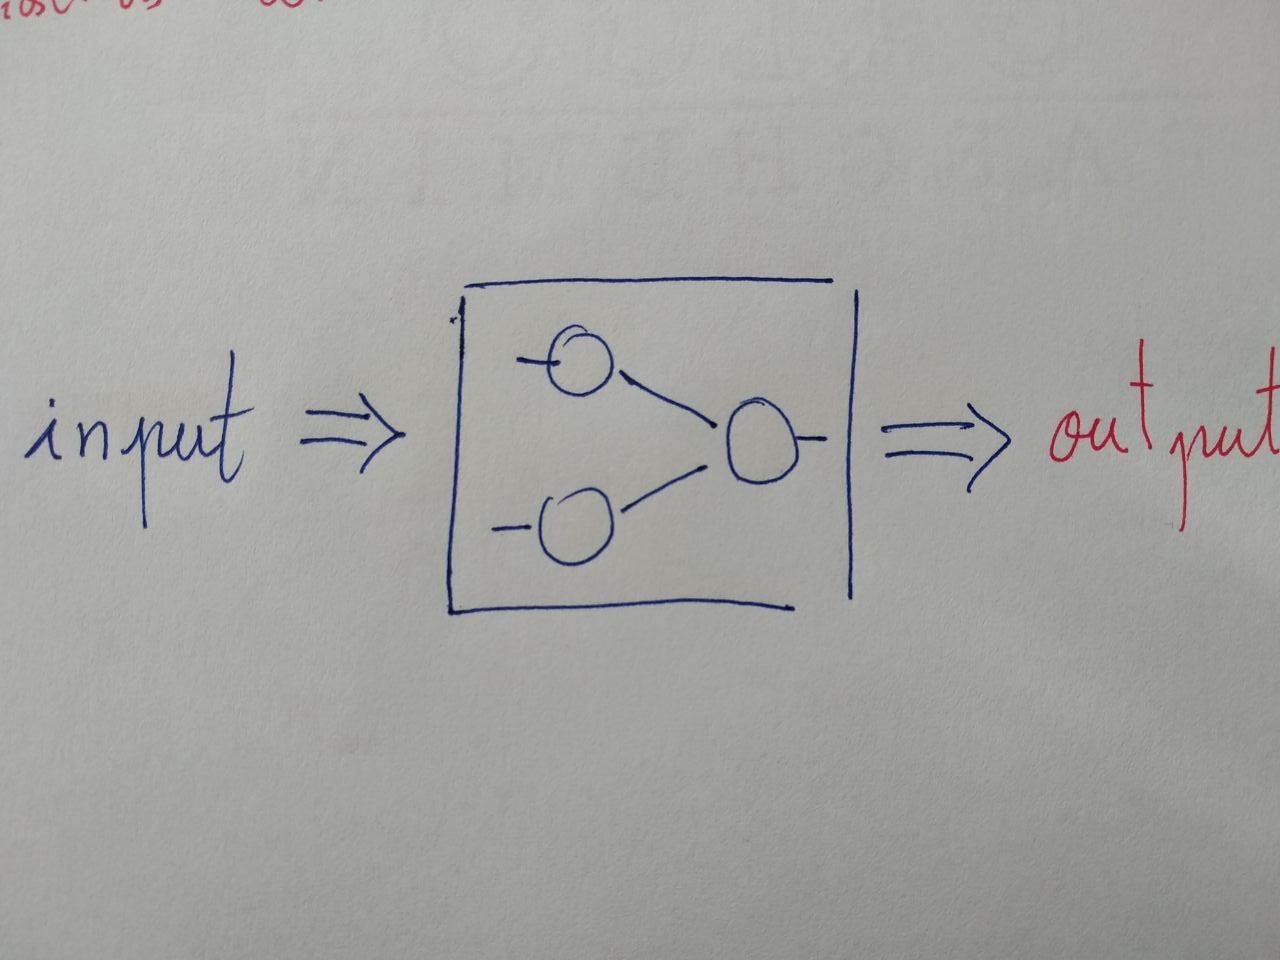 input ⇒ ⇒ output